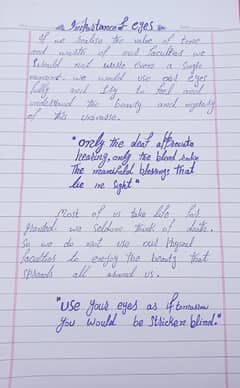 Importance of eyes
If we realize the value of time
and worth of our faculties we
Would not waste even a single
moment. we would use our eyes
fully and try to feel and
understand the beauty and mystery
of this universe.
"only the deaf appreciate
hearing, only the blind realize
The manifold blessings that
lie in Sight"
Most of us take life for
granted. we seldom think of death.
So we do not use our physical
faculties to enjoy the beauty that
spreads all around us.
"use your eyes as if tomorrow
you would be Stricken blind."